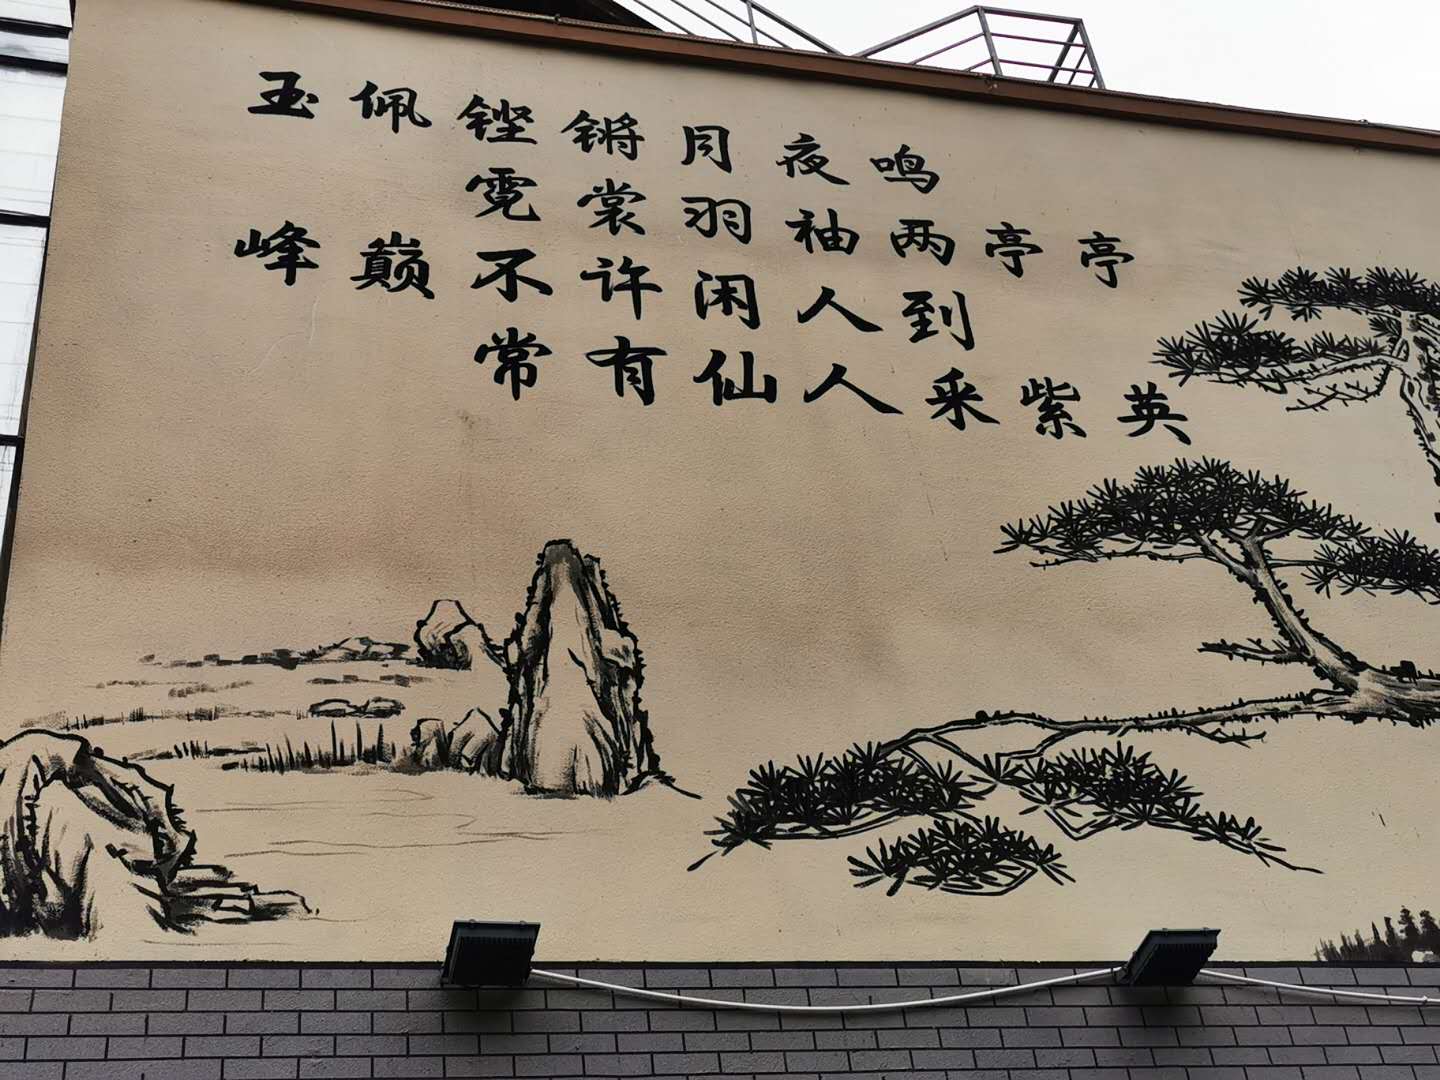 玉佩铿锵月夜鸣
霓裳羽袖两亭亭
峰巅不许闲人到
常有仙人采紫英